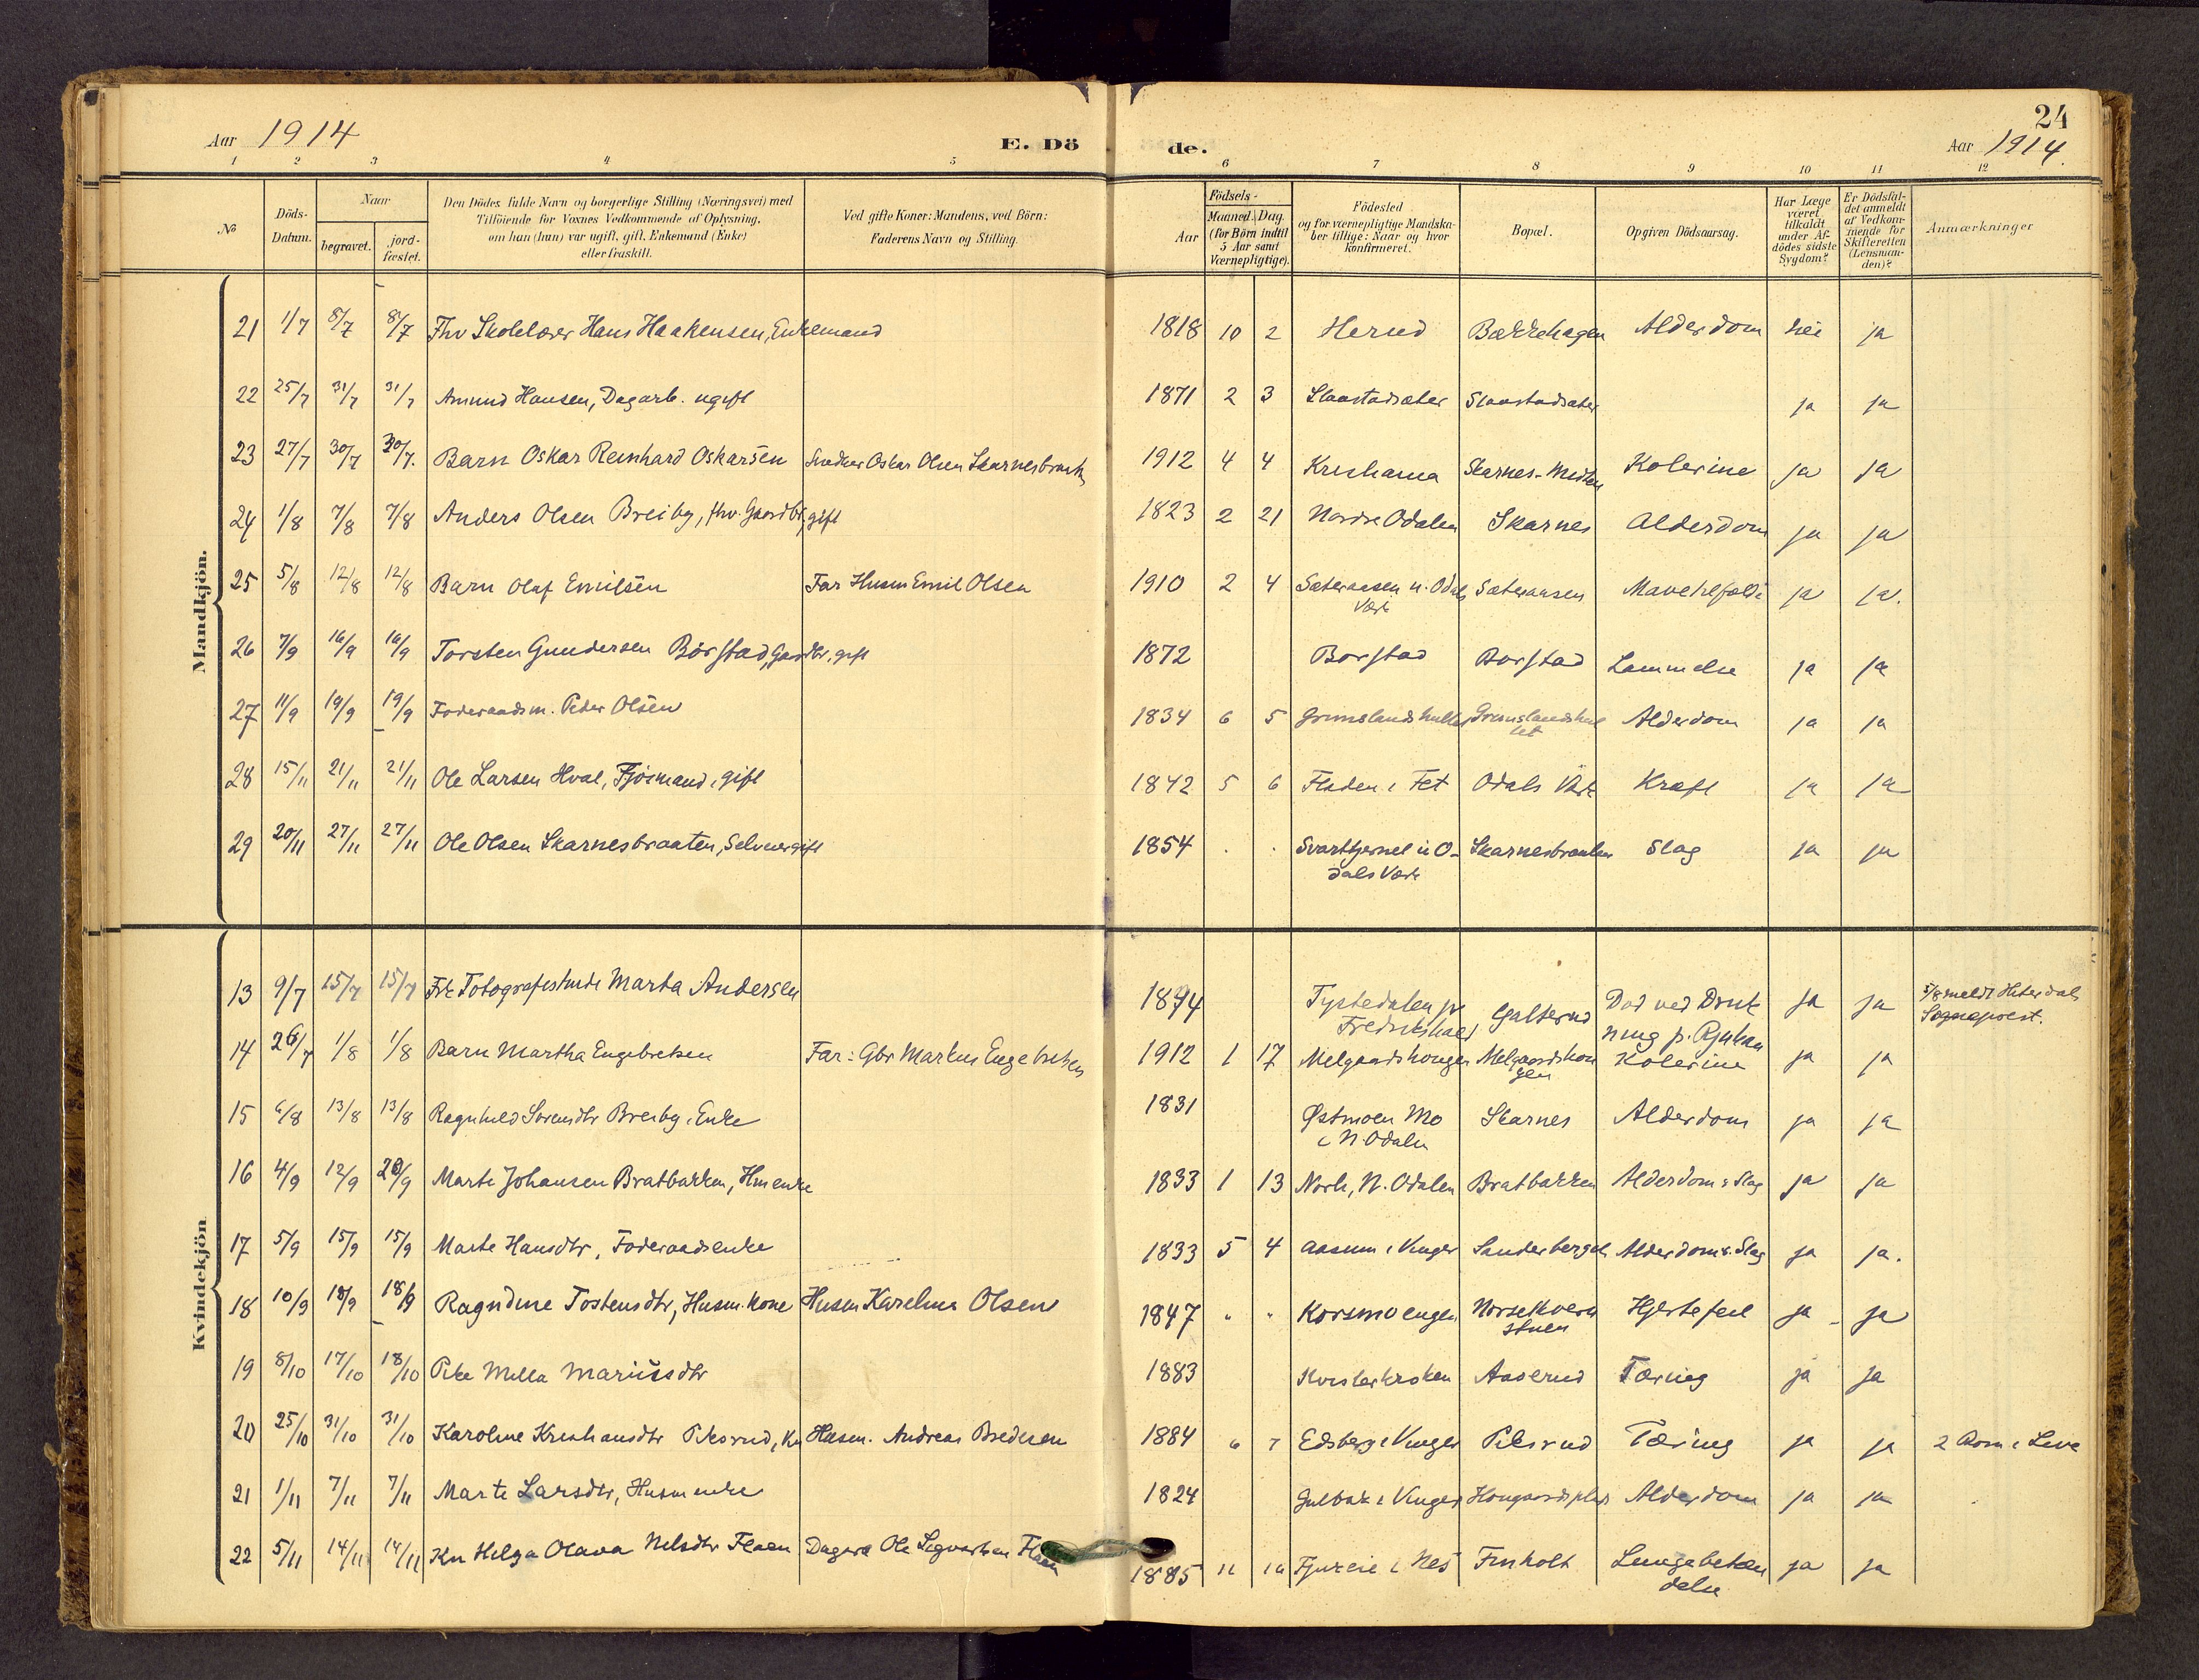 24
Aar 1914 E. Dö de. Aar 1914.
1 2 3 4 5 6 7 8 9 10 11 12
No
Döds-Datum.
Naar
begravet.
jord-fæstet.
Den Dödes fulde Navn og borgerlige Stilling (Næringsvei) med
Tilföiende for Voxnes Vedkommende af Oplysning,
om han (hun) var ugift, gift, Enkemand (Enke)
eller fraskilt.
Ved gifte Koner: Mandens, ved Börn:
Faderens Navn og Stilling.
Födsels-
Aar
Maaned. Dag.
(for Börn indtil
5 Aar samt
Værnepligtige).
Födested
og for værnepligtige Mandska-
ber tillige: Naar og hvor
konfirmeret.
Bopæl.
Opgiven Dödsaarsag.
Har Læge
været
tilkaldt
under Af-
dödes sidste
Sygdom?
Er Dödsfal-
det anmeldt
af Vedkom-
mende for
Skifteretten
(Lensman-
den)?
Anmærkninger
Mandkjön.
21 1/7 8/7 8/7 Fhv Skolelærer Hans Haakensen, Enkemand 1818 10 2 Herud Bakkehagen Alderdom nei ja
22 25/7 31/7 31/7 Amund Hansen, Dagarb. ugift 1871 2 3 Slaastadsæter Slaastadsæter ja ja
23 27/7 30/7 30/7. Barn Oskar Reinhard Oskarsen Snedker Oskar Olsen Skarnesbraaten 1912 4 4 Kristiania Skarnes- Kolerine ja ja
24 1/8 7/8 7/8 Anders Olsen Breiby, fhv. Gaardbr, gift 1823 2 21 Nordre Odalen Skarnes Alderdom ja ja
25 5/8 12/8 12/8 Barn Olaf Emilsen Far Husm Emil Olsen 1910 2 4 Sæteraasen u. Odals Sæteraasen ja ja.
Værk
26 7/9 16/9 16/9 Torsten Gundersen Börstad, Gardbr, gift 1872 Borstad Borstad Lammelse ja ja
27 11/9 19/9 19/9 Foderaadsm. Peder Olsen 1834 6 5 Grimslandshullet Grimslandshul Alderdom ja ja
let
28 15/11 21/11 21/11 Ole Larsen Hval, Fjösmand, gift 1842 5 6 Fladen i Fet Odals Værk Kræft ja ja
29 20/11 27/11 27/11 Ole Olsen Skarnesbraaten, Selveier gift 1854 . . Svarttjernet u O- Skarnesbraaten Slag ja ja
dals Værk
Kvindekjön
13 9/7 15/7 15/7 Frk Marta Andersen 1894 Tystedalen pr Galterud Död ved Druk ja ja 5/8 meldt Hiterdals
Fredrikshald ning p. Rjukan Sogneprest.
14 26/7 1/8 1/8 Barn Martha Engebretsen Far: Gbr Markus Engebretsen 1912 1 17 Melgaardshougen Melgaardshou Kolerine ja ja
gen
15 6/8 13/8 13/8 Ragnhild Sorensdtr Breiby, Enke 1831 Østmoen Mo Skarnes Alderdom ja ja
i N. Odalen
16 4/9 12/9 20/9 Marte Johansen Bratbakken, Hmenke 1833 1 13 N. Odalen Bratbakken Alderdom: Slag ja ja
17 5/9 15/9 15/9 Marte Hansdtr, Foderaadsenke 1833 5 4 Aasum i Vinger Sanderberget Alderdom: Slag ja ja.
18 10/9 18/9 18/9 Ragndine Tostensdtr, Husm. kone Husm Karelius Olsen 1847 " " Korsmoengen Norsetkvern Hjertefeil ja ja
stuen
19 8/10 17/10 18/10 Pike Milla Mariusdtr 1883 Kvislerkroken Aaserud Tæring ja ja
20 25/10 31/10 31/10 Karoline Kristiansdtr Pilsrud, Kn Husm. Andreas Bredesen 1884 6 7 Edsberg i Vinger Pilsrud Tæring ja ja 2 Born i Live
21 1/11 7/11 7/11 Marte Larsdtr, Husm enke 1824 Gulbak i Vinger Alderdom ja ja
22 5/11 14/11 14/11 Kn Helga Olava Nilsdtr Flaen Dagarb Ole Sigvartsen Flaen 1885 11 i Nes Finholt Lungebetæn ja ja
delse